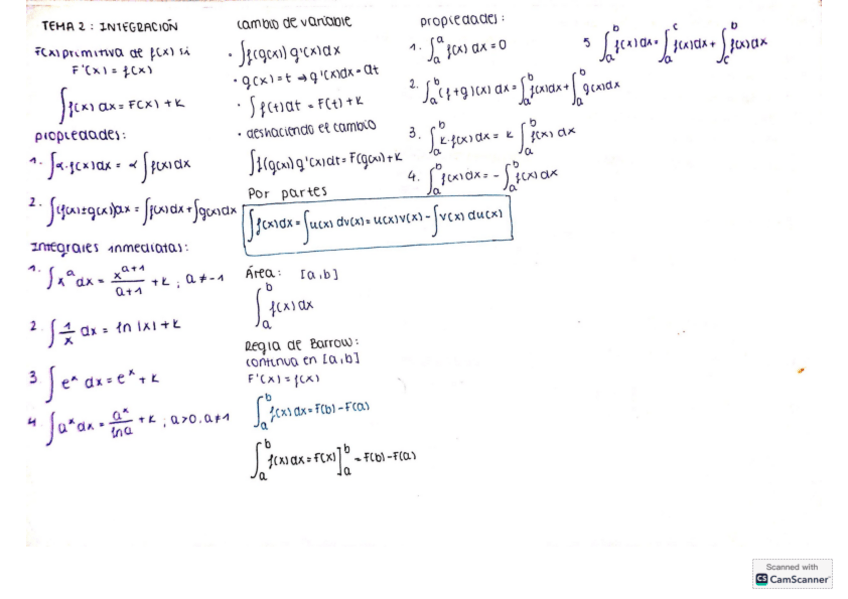 TEMA 2: INTEGRACIÓN
F(x) primitiva de f(x) si
F'(x) = f(x)
∫f(x) dx = F(x) + k
propiedades:
1. ∫α·f(x) dx = α ∫f(x) dx
2. ∫(f(x)±g(x))dx = ∫f(x) dx + ∫g(x) dx
Integrales inmediatas:
1. ∫x^a dx = x^(a+1)/(a+1) + k ; a ≠ -1
2. ∫1/x dx = ln |x| + k
3 ∫e^x dx = e^x + k
4. ∫a^x dx = a^x/ln a + k ; a>0, a≠1
cambio de variable
· ∫f(g(x)) g'(x) dx
· g(x) = t → g'(x)dx = dt
· ∫f(t) dt = F(t) + k
· deshaciendo el cambio
∫f(g(x)) g'(x) dt = F(g(x)) + k
Por partes
∫f(x) dx = ∫u(x) dv(x) = u(x)v(x) - ∫v(x) du(x)
Área: [a,b]
∫_a^b f(x) dx
Regla de Barrow:
continua en [a,b]
F'(x) = f(x)
∫_a^b f(x) dx = F(b) - F(a)
∫_a^b f(x) dx = F(x)]_a^b = F(b) - F(a)
propiedades:
1. ∫_a^a f(x) dx = 0
2. ∫_a^b (f+g)(x) dx = ∫_a^b f(x) dx + ∫_a^b g(x) dx
3. ∫_a^b k·f(x) dx = k ∫_a^b f(x) dx
4. ∫_a^b f(x) dx = - ∫_a^b f(x) dx
5 ∫_a^b f(x) dx = ∫_a^c f(x) dx + ∫_c^b f(x) dx
Scanned with
CS CamScanner